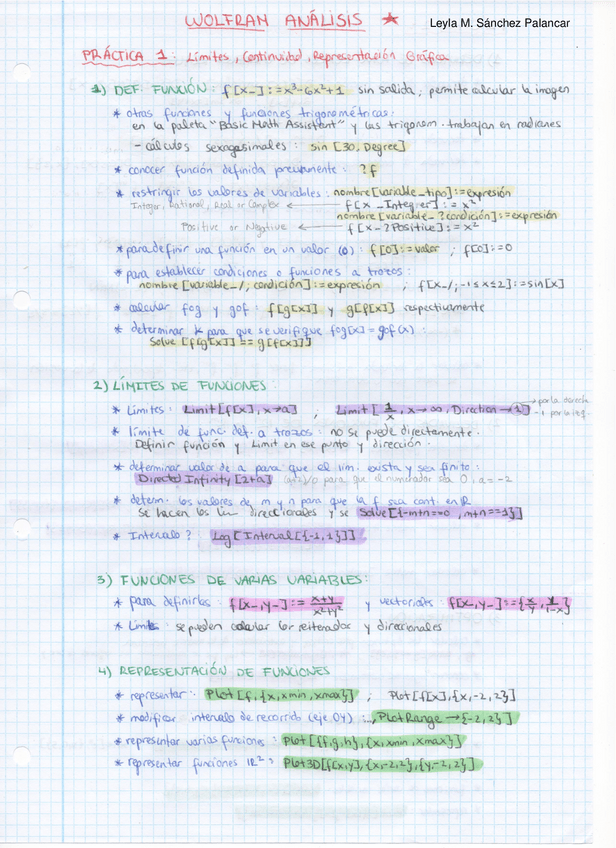 WOLFRAN ANÁLISIS ★
Leyla M. Sánchez Palancar
PRÁCTICA 1: Límites, Continuidad, Representación Gráfica
1) DEF. FUNCIÓN: f[x_]:=x³-6x²+1 sin salida; permite calcular la imagen
* otras funciones y funciones trigonométricas:
en la paleta "Basic Math Assistent" y las trigonom. trabajan en radianes
- cálculos sexagesimales: sin [30, Degree]
* conocer función definida previamente: ?f
* restringir los valores de variables: nombre[variable_tipo]:=expresión
Integer, Rational, Real or Complex ← f[x_Integrer]:=x²
nombre[variable_?condición]:=expresión
Positive or Negative ← f[x_?Positive]:=x²
* para definir una función en un valor (0): f[0]:=valor ; f[0]:=0
* para establecer condiciones o funciones a trozos:
nombre[variable_/; condición]:=expresión ; f[x_/;-1≤x≤2]:=sin[x]
* calcular fog y gof: f[g[x]] y g[f[x]] respectivamente
* determinar k para que se verifique fog(x)=gof(x):
Solve [f[g[x]] == g[f[x]]]
2) LÍMITES DE FUNCIONES
* Límites: Limit[f[x], x→a] , Limit[1/x, x→∞, Direction→1] → por la derecha
-1 por la izq.
* límite de func. def. a trozos: no se puede directamente.
Definir función y Limit en ese punto y dirección.
* determinar valor de a para que el lim. exista y sea finito:
Directed Infinity [2+a] para que el numerador sea 0, a=-2
* determ. los valores de m y n para que la f sea cont. en ℝ
Se hacen los lim direccionales y se Solve[{-m+n==0, m+n==1}]
* Intervalo? Log[Interval[{-1,1}]]
3) FUNCIONES DE VARIAS VARIABLES:
* para definirlas: f[x_,y_]:= x+y/x²+y² y vectoriales: f[x_,y_]:={x/y, y/1-x}
* Límites: se pueden calcular los reiterados y direccionales
4) REPRESENTACIÓN DE FUNCIONES
* representar: Plot[f,{x,xmin,xmax}] ; Plot[f[x],{x,-2,2}]
* modificar intervalo de recorrido (eje OY): ..., PlotRange→{-2,2}]
* representar varias funciones: Plot[{f,g,h},{x,xmin,xmax}]
* representar funciones ℝ²: Plot3D[f[x,y],{x,-2,2},{y,-2,2}]